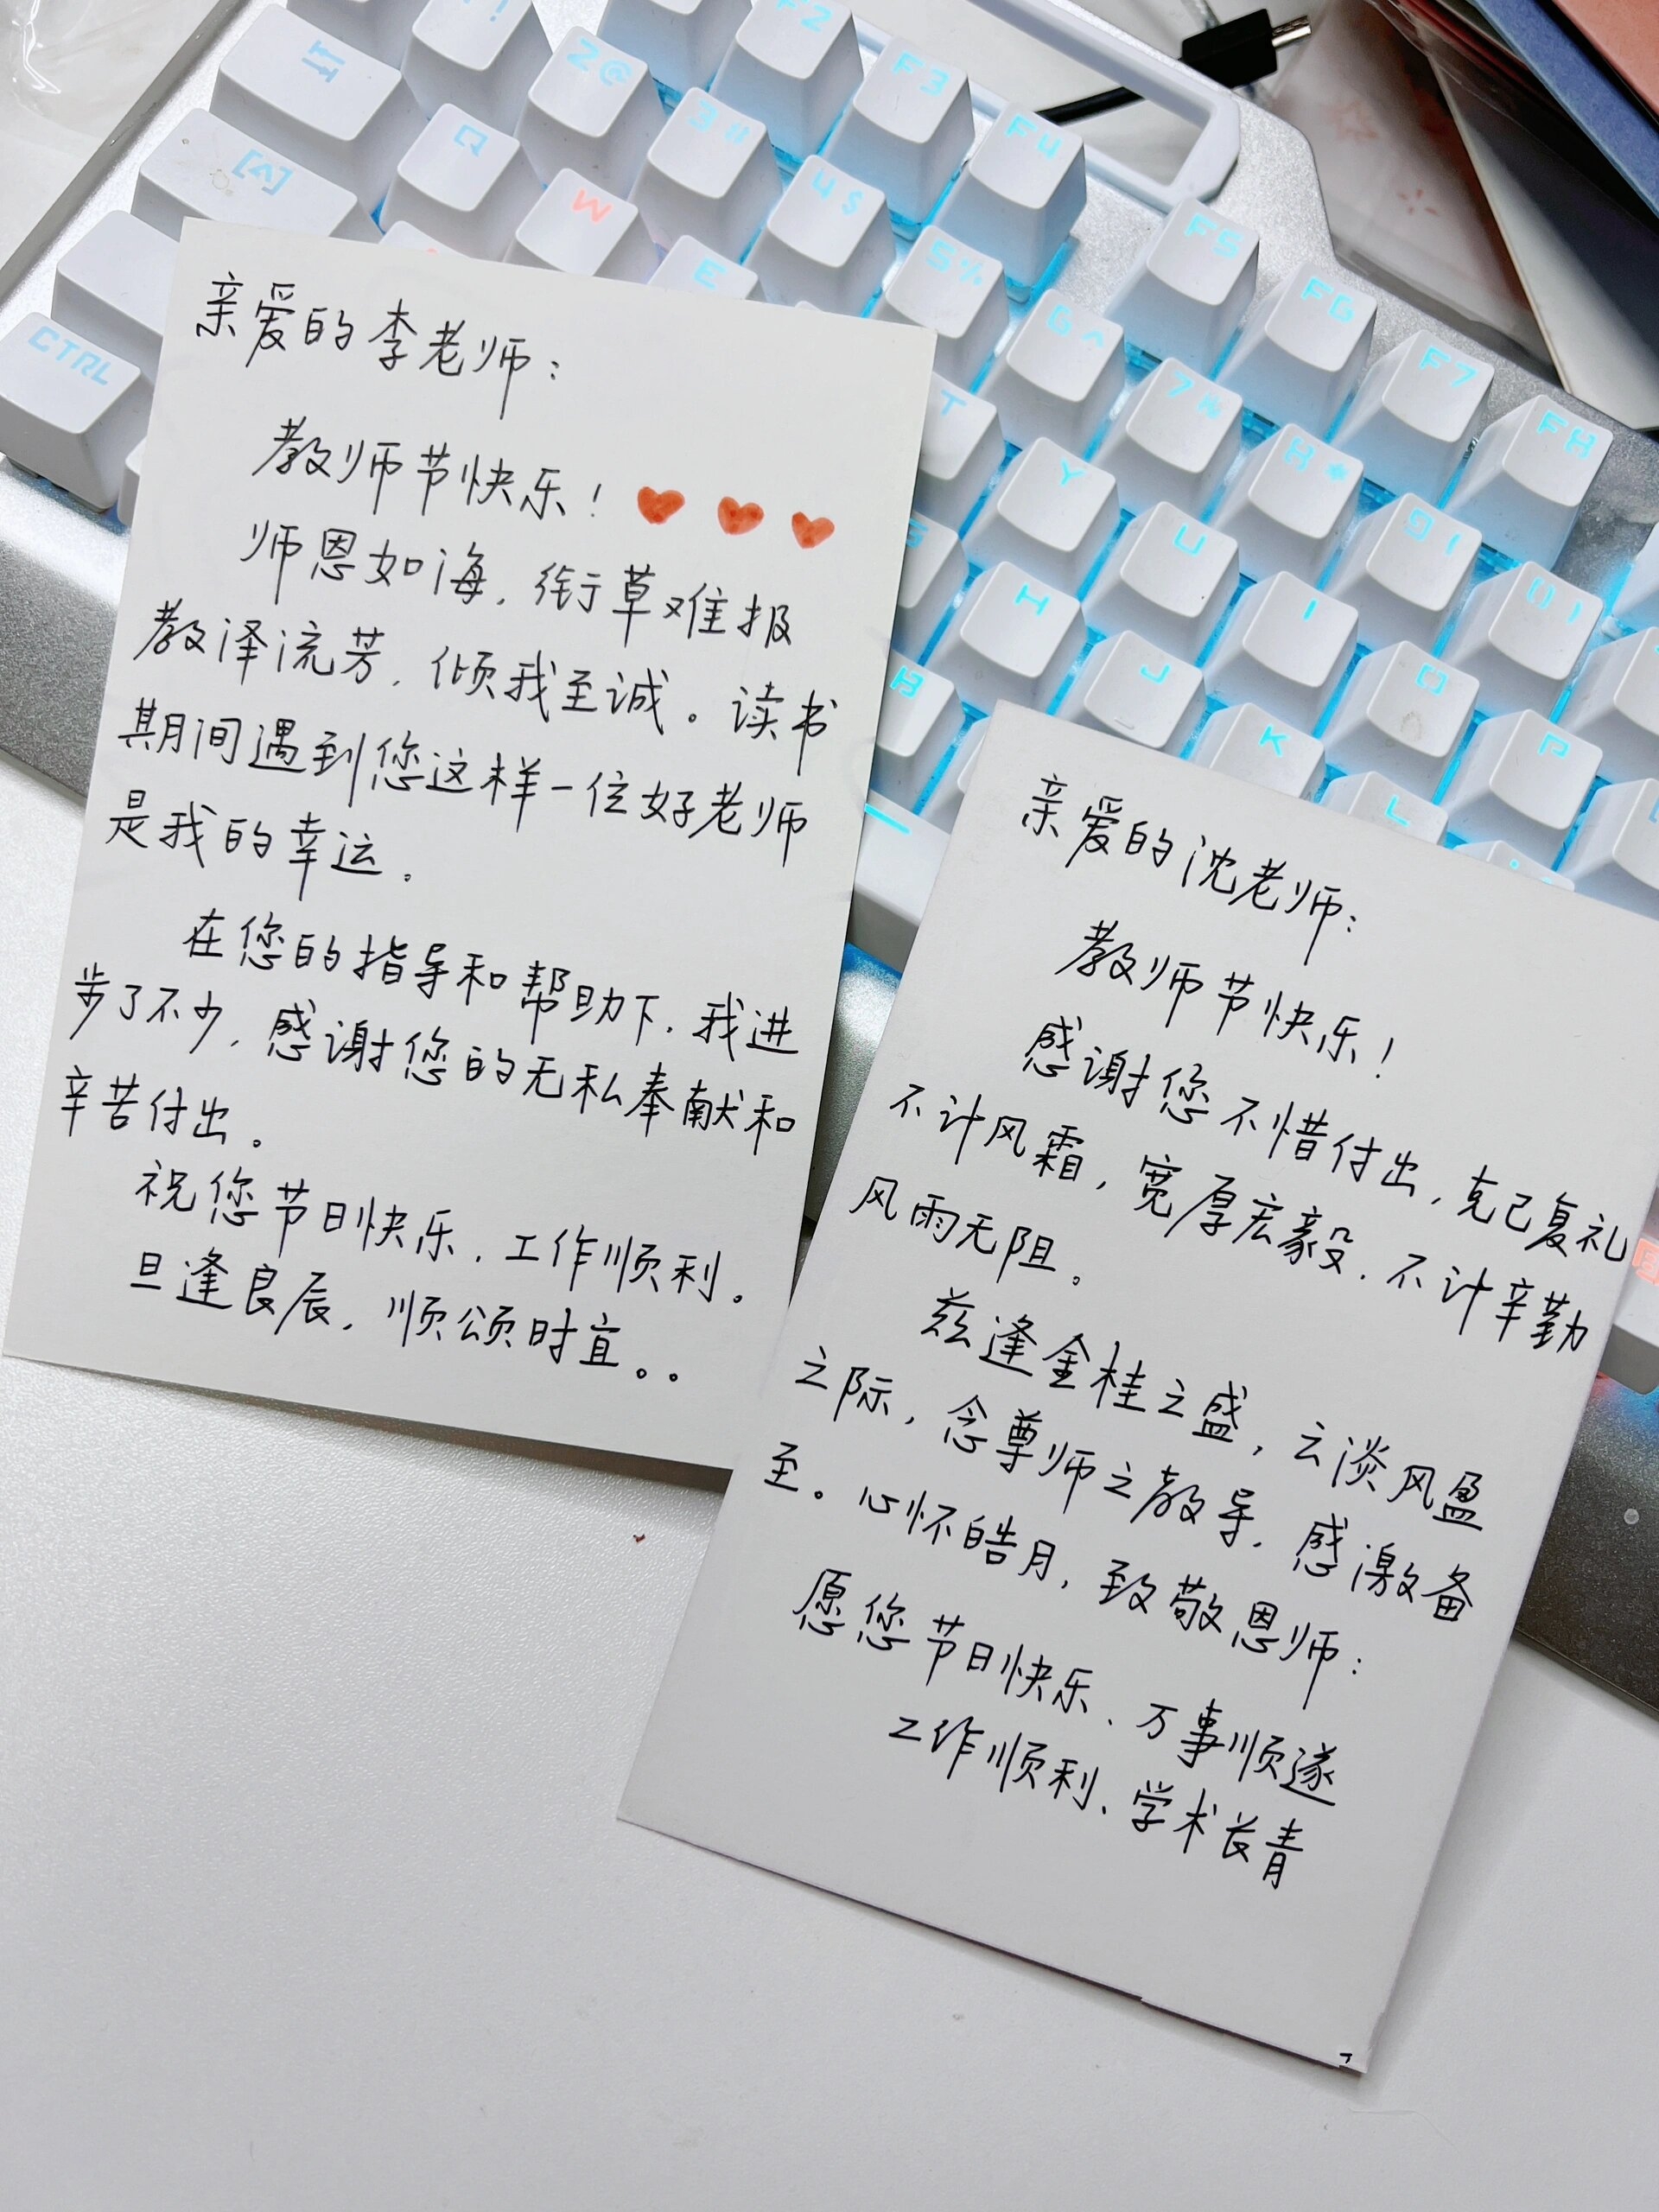 亲爱的李老师：
教师节快乐！
师恩如海，衔草难报
教泽流芳，倾我至诚。读书
期间遇到您这样一位好老师
是我的幸运。
在您的指导和帮助下，我进
步了不少，感谢您的无私奉献和
辛苦付出。
祝您节日快乐，工作顺利。
旦逢良辰，顺颂时宜。。
亲爱的沈老师：
教师节快乐！
感谢您不惜付出，克己复礼
不计风霜，宽厚宏毅，不计辛勤
风雨无阻。
兹逢金桂之盛，云淡风盈
之际，念尊师之教导，感激备
至。心怀皓月，致敬恩师：
愿您节日快乐、万事顺遂
工作顺利、学术长青
CTRL
[A]
Q
W
E
T
Y
U
I
O
P
H
J
K
L
B
2@
3
4$
5%
6^
7
8*
9(
0)
F2
F3
F4
F5
F6
F7
F8